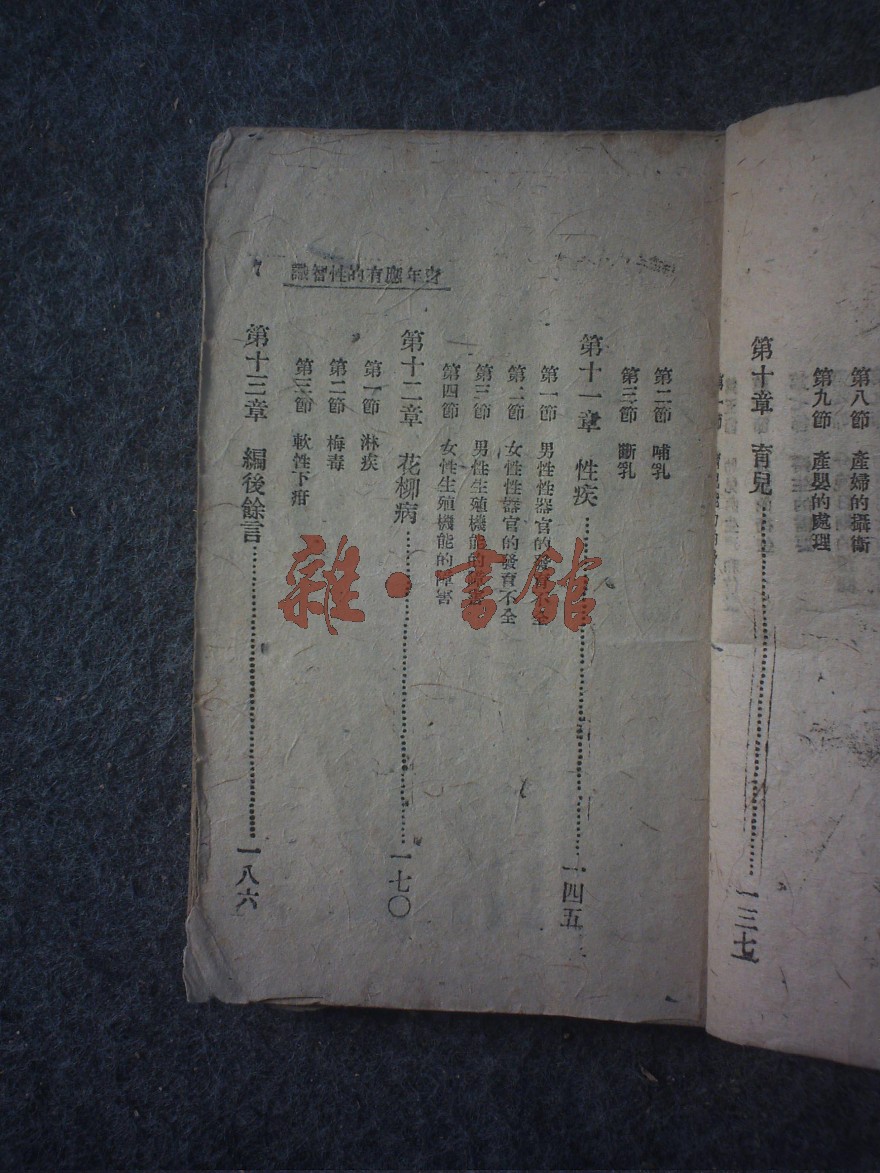 第八節　產婦的攝衛
第九節　產嬰的處理
第十章　育兒……一三七
第二節　哺乳
第三節　斷乳
第十一章　性疾……一四五
第一節　男性性器官的發育不全
第二節　女性性器官的發育不全
第三節　男性生殖機能的障害
第四節　女性生殖機能的障害
第十二章　花柳病……一七〇
第一節　淋疾
第二節　梅毒
第三節　軟性下疳
第十三章　編後餘言……一八六
識智性的有應年青
7
雜·書館